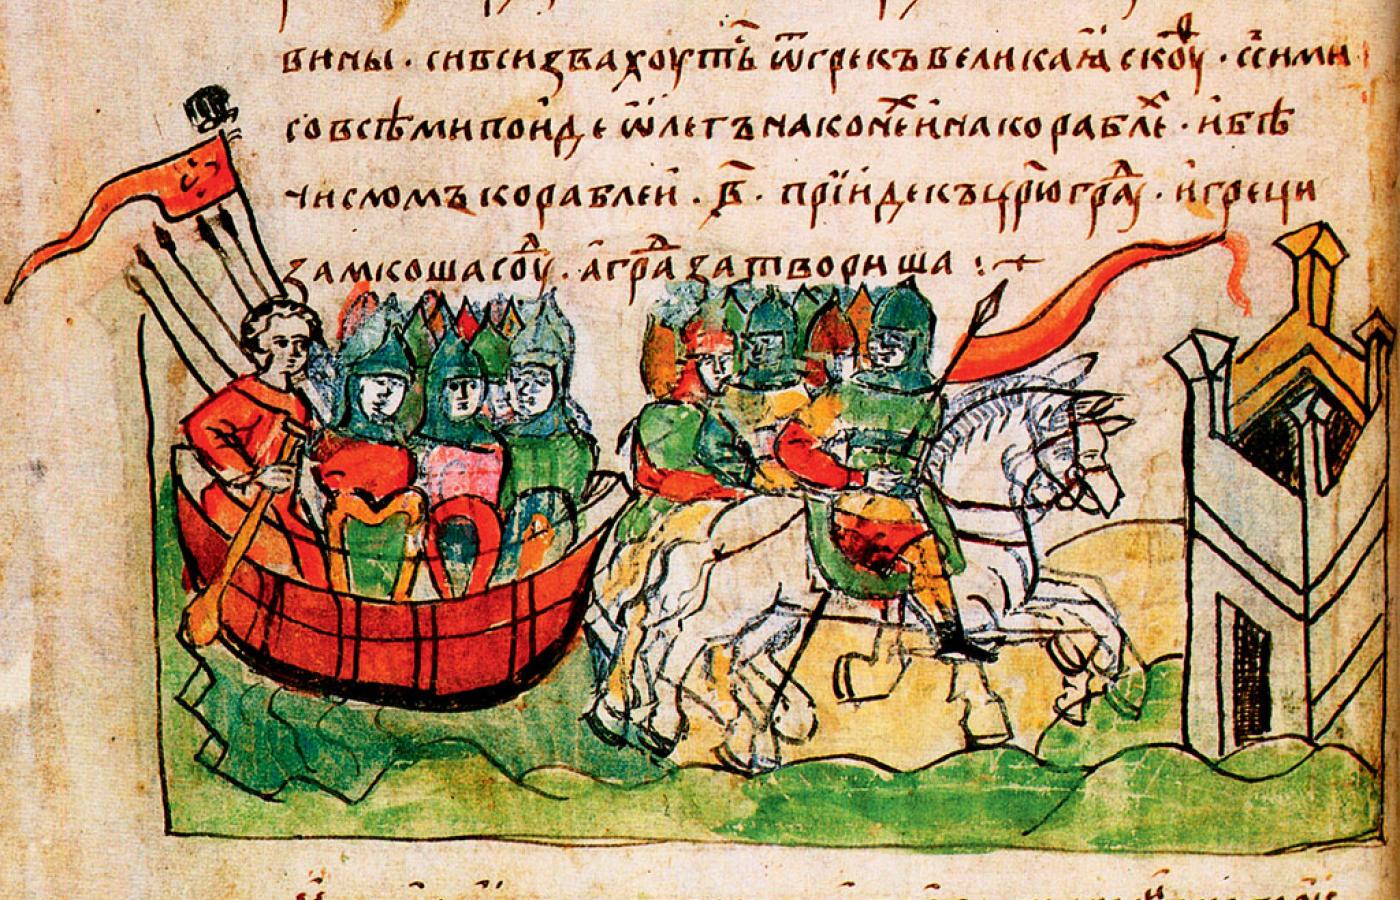 вины · сибсизвахоуть ѿгрекъвеликаꙗскоуⷴ · ссими
совсѣмипоиде ѡлегънаконеⷯинакораблеⷯ · ибѣ
числомъкораблеи · в҃ · прїидекъцр҃югра · игреци
замкошасоуⷣ · аграⷣзатвориша :~